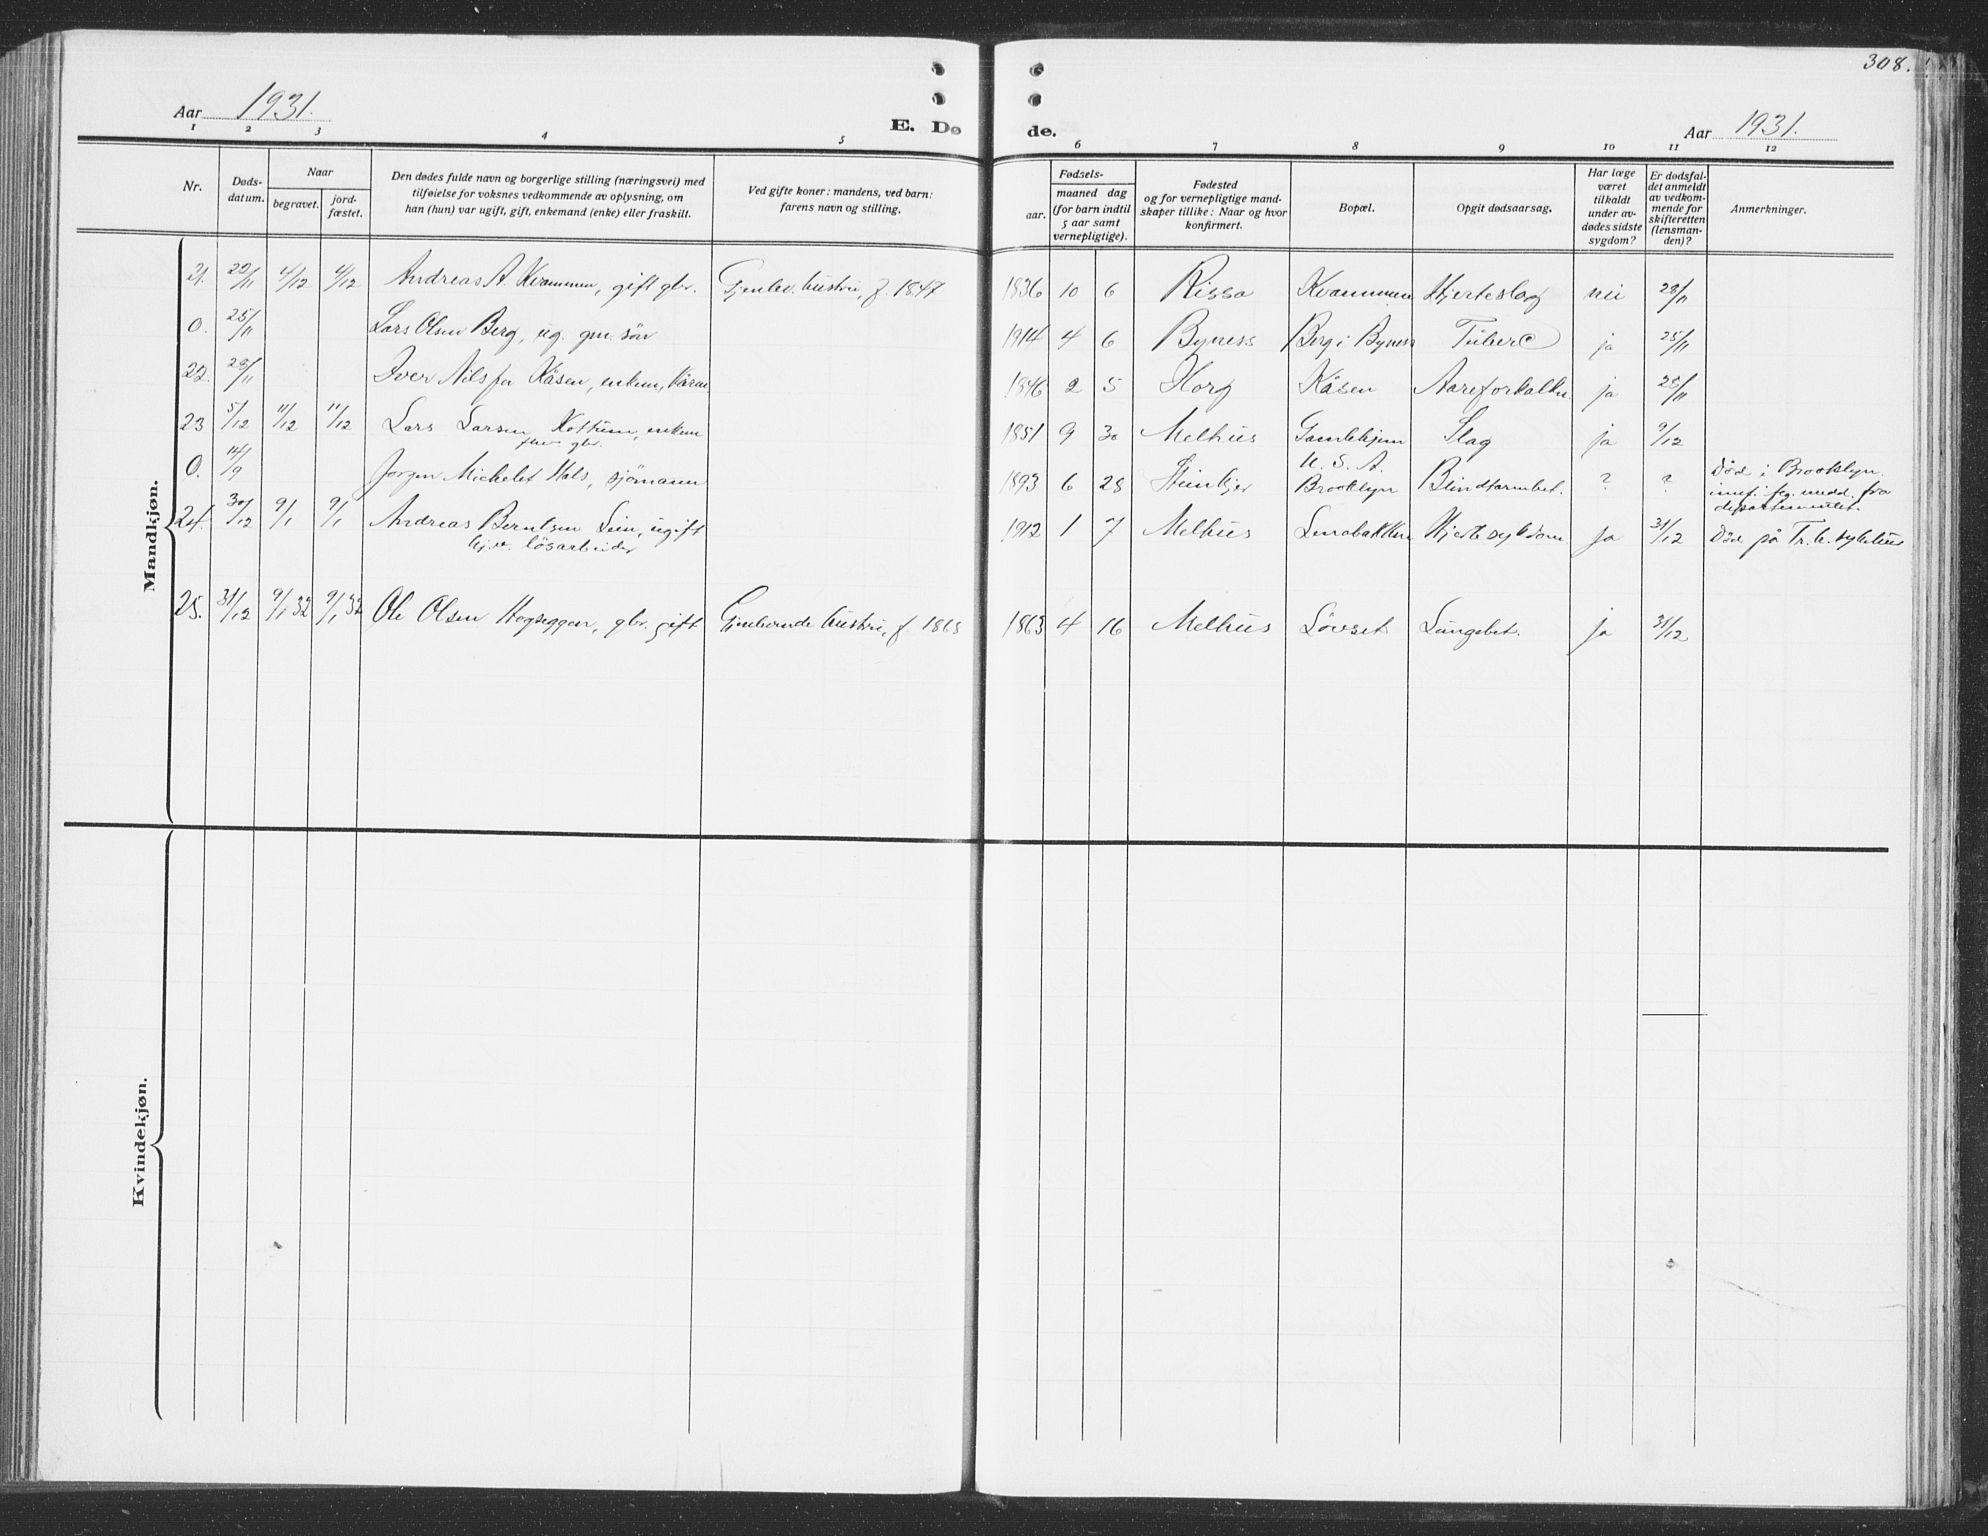 308.
Aar 1931.
E. Dø
de.
Aar 1931.
1 2 3 4 5 6 7 8 9 10 11 12
Nr.
Døds-
datum.
Naar
begravet.
jord-
fæstet.
Den dødes fulde navn og borgerlige stilling (næringsvei) med
tilføielse for voksnes vedkommende av oplysning, om
han (hun) var ugift, gift, enkemand (enke) eller fraskilt.
Ved gifte koner: mandens, ved barn:
farens navn og stilling.
Fødsels-
aar.
maaned dag
(for barn indtil
5 aar samt
vernepligtige).
Fødested
og for vernepligtige mand-
skaper tillike: Naar og hvor
konfirmert.
Bopæl.
Opgit dødsaarsag.
Har læge
været
tilkaldt
under av-
dødes sidste
sygdom?
Er dødsfal-
det anmeldt
av vedkom-
mende for
skifteretten
(lensman-
den)?
Anmerkninger.
Mandkjøn.
21. 4/12 4/12 Andreas A. Kvammen, gift gbr. Gjenlev. hustru, f. 1847 1836 10 6 Rissa Kvammen Hjerteslag nei 28/11
0. 25/11 Lars Olsen Berg, ug. gm. sön 1914 4 6 Byness Berg i Byness Tuberc ja 25/11
22. 28/11 Iver Nilsen Kåsen, enkem, 1846 2 5 Horg Kåsen Aareforkalkn. ja 28/11
23 5/12 11/12 11/12 Lars Larsen Kottum, enkem 1851 9 30 Melhus Gamlehjem Slag ja 9/12
fhv. gbr.
0. 14/9 Jörgen Michelet Hals, sjömann 1893 6 28 Steinkjer U. S. A. Brooklyn Blindtarmbet. ? ? Död i Brooklyn
medd. fra
departementet.
24. 30/12 9/1 9/1 Andreas Berntsen Lien, ugift 1912 1 7 Melhus Hjertesykdom ja 31/12 Död på Tr.h. sykehus
lösarbeider
25. 31/12 9/1 32 9/1 32 Ole Olsen Hogseggen, gbr. gift Gjenlevende hustru, f 1865 1863 4 16 Melhus Lövset Lungebet. ja 31/12
Kvindekjøn.